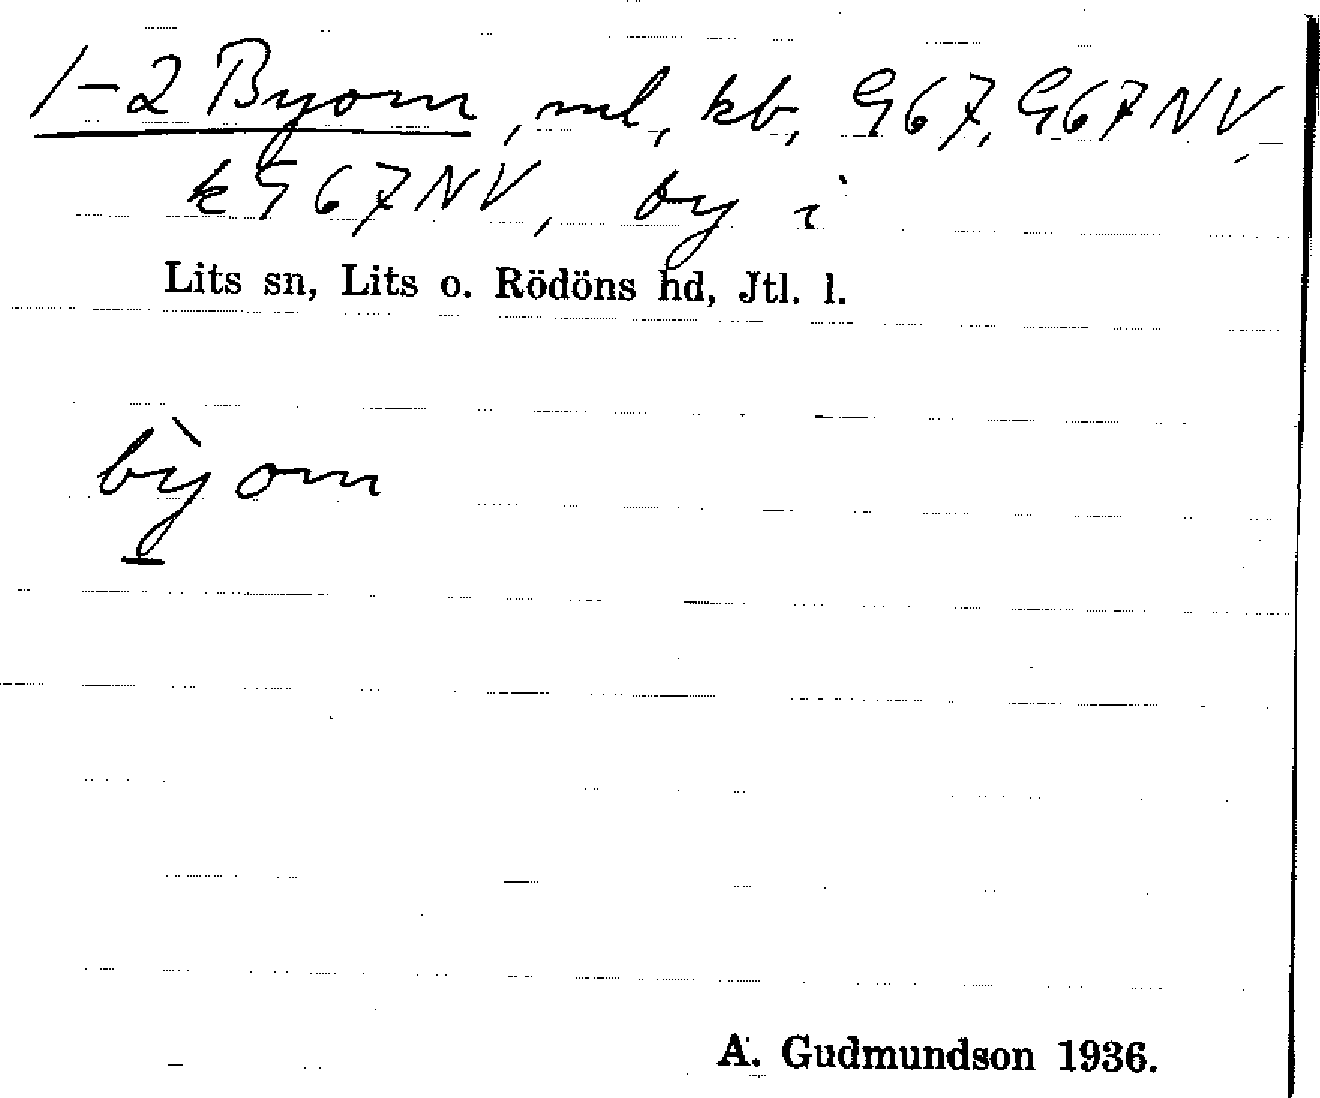 1-2 Byom, ml, kb, G67, G67NV,
k G67NV, by i
Lits sn, Lits o. Rödöns hd, Jtl. l.
bỳom
A. Gudmundson 1936.